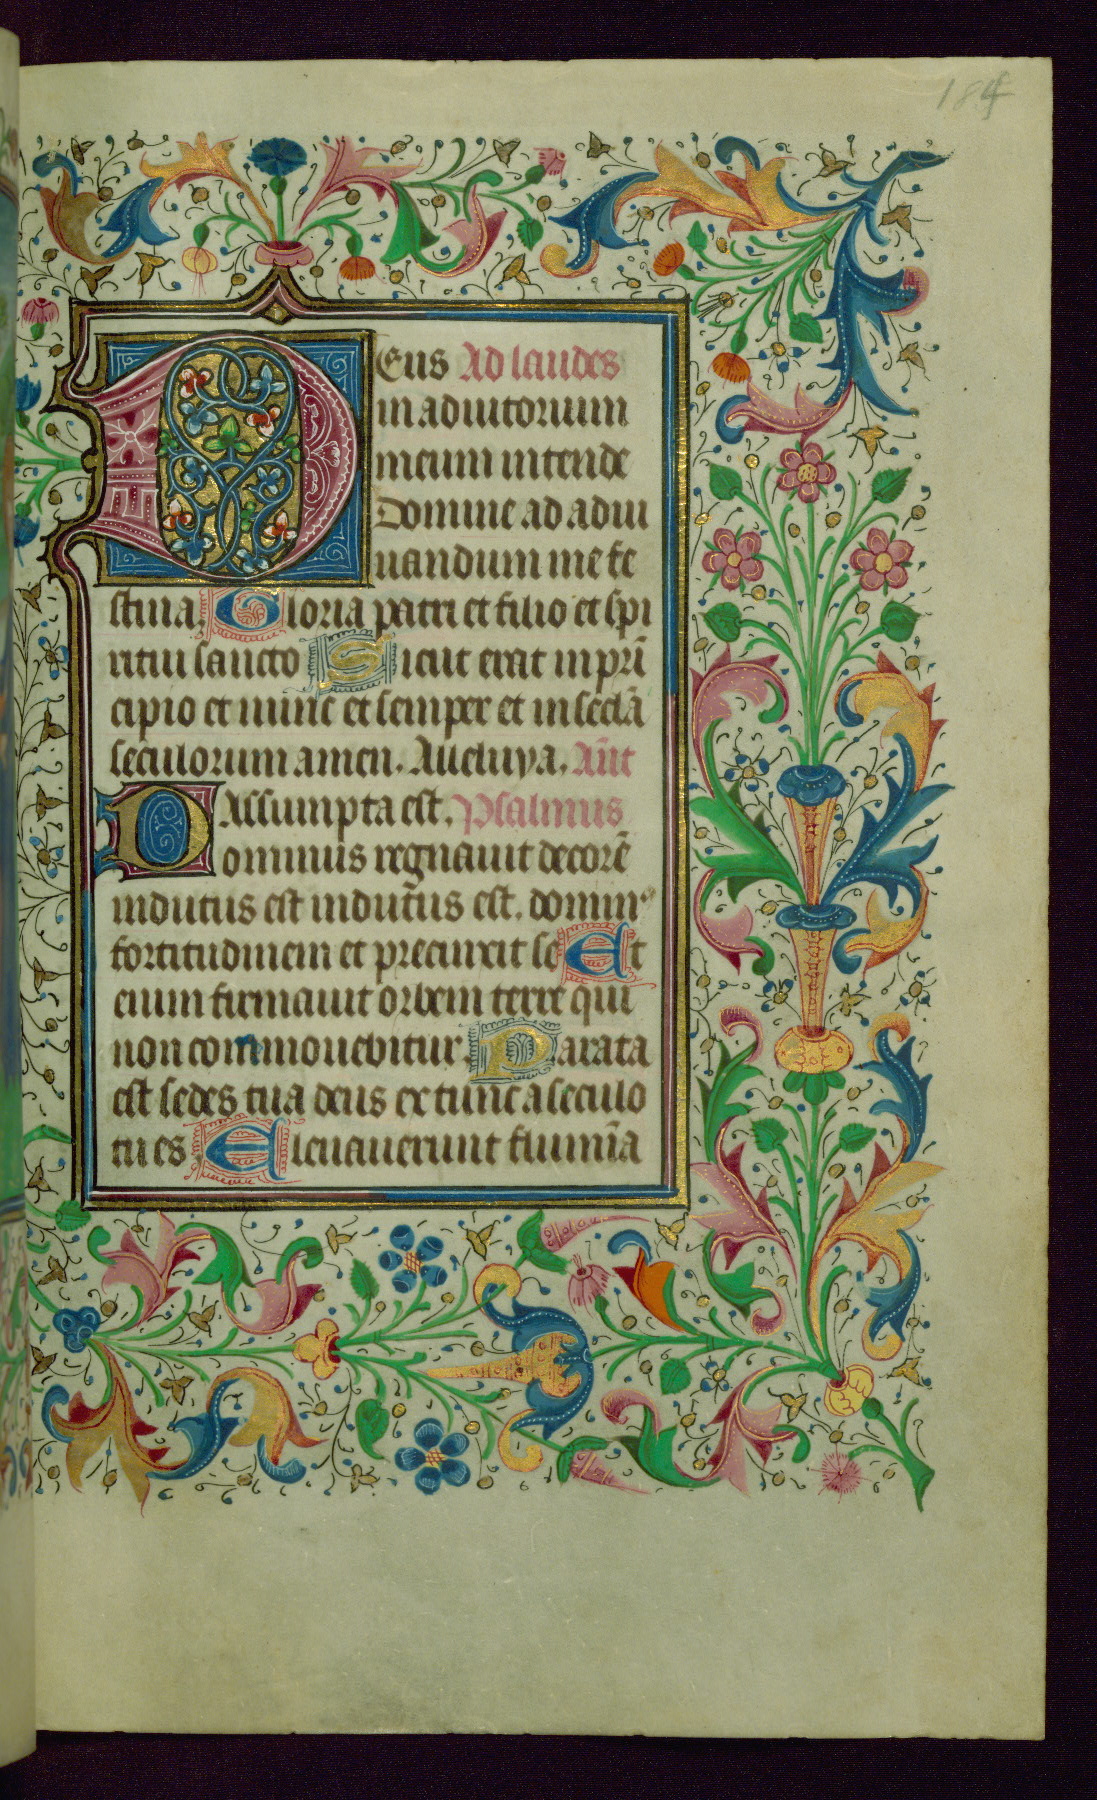 184
Deus Ad laudes
in adiutorium
meum intende
Domine ad adiu
uandum me fe
stina. Gloria patri et filio et spi
ritui sancto Sicut erat in prī
cipio et nunc et semper et in seclā
seculorum amen. Alleluya. Añt
Assumpta est. Psalmus
Dominus regnauit decorē
indutus est indutus est. domin⁹
fortitudinem et precinxit se Et
enim firmauit orbem terre qui
non commouebitur Parata
est sedes tua deus ex tunc a seculo
tu es Eleuauerunt flumina